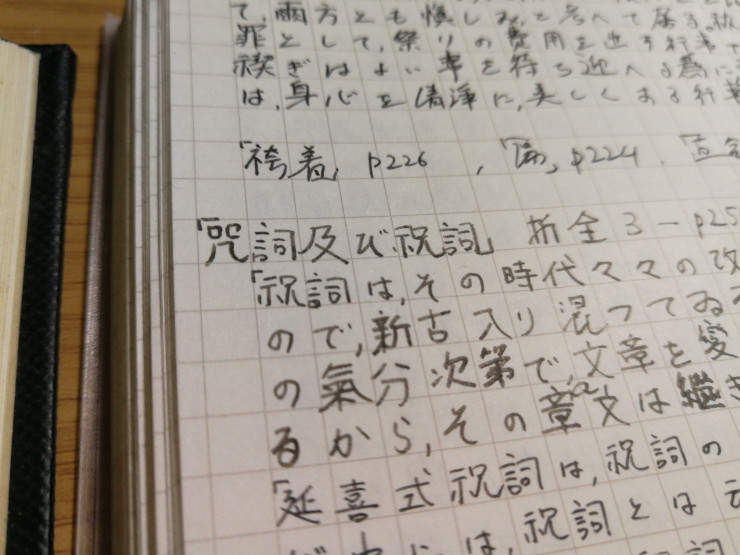 て、両方とも慎しみと考へて居る。祓
罪として、祭りの費用を出す行事で
禊ぎはよい事を待ち迎へる為に
は、身心を清浄に、美しくある行
「袴着」 p226 , p224.
「咒詞及び祝詞」 折全3-p25
「祝詞は、その時代々々の改
ので、新古入り混つてゐる
の氣分次第で、文章を變
るから、その章文は継ぎ
「延喜式祝詞は、祝詞の
は、祝詞とは